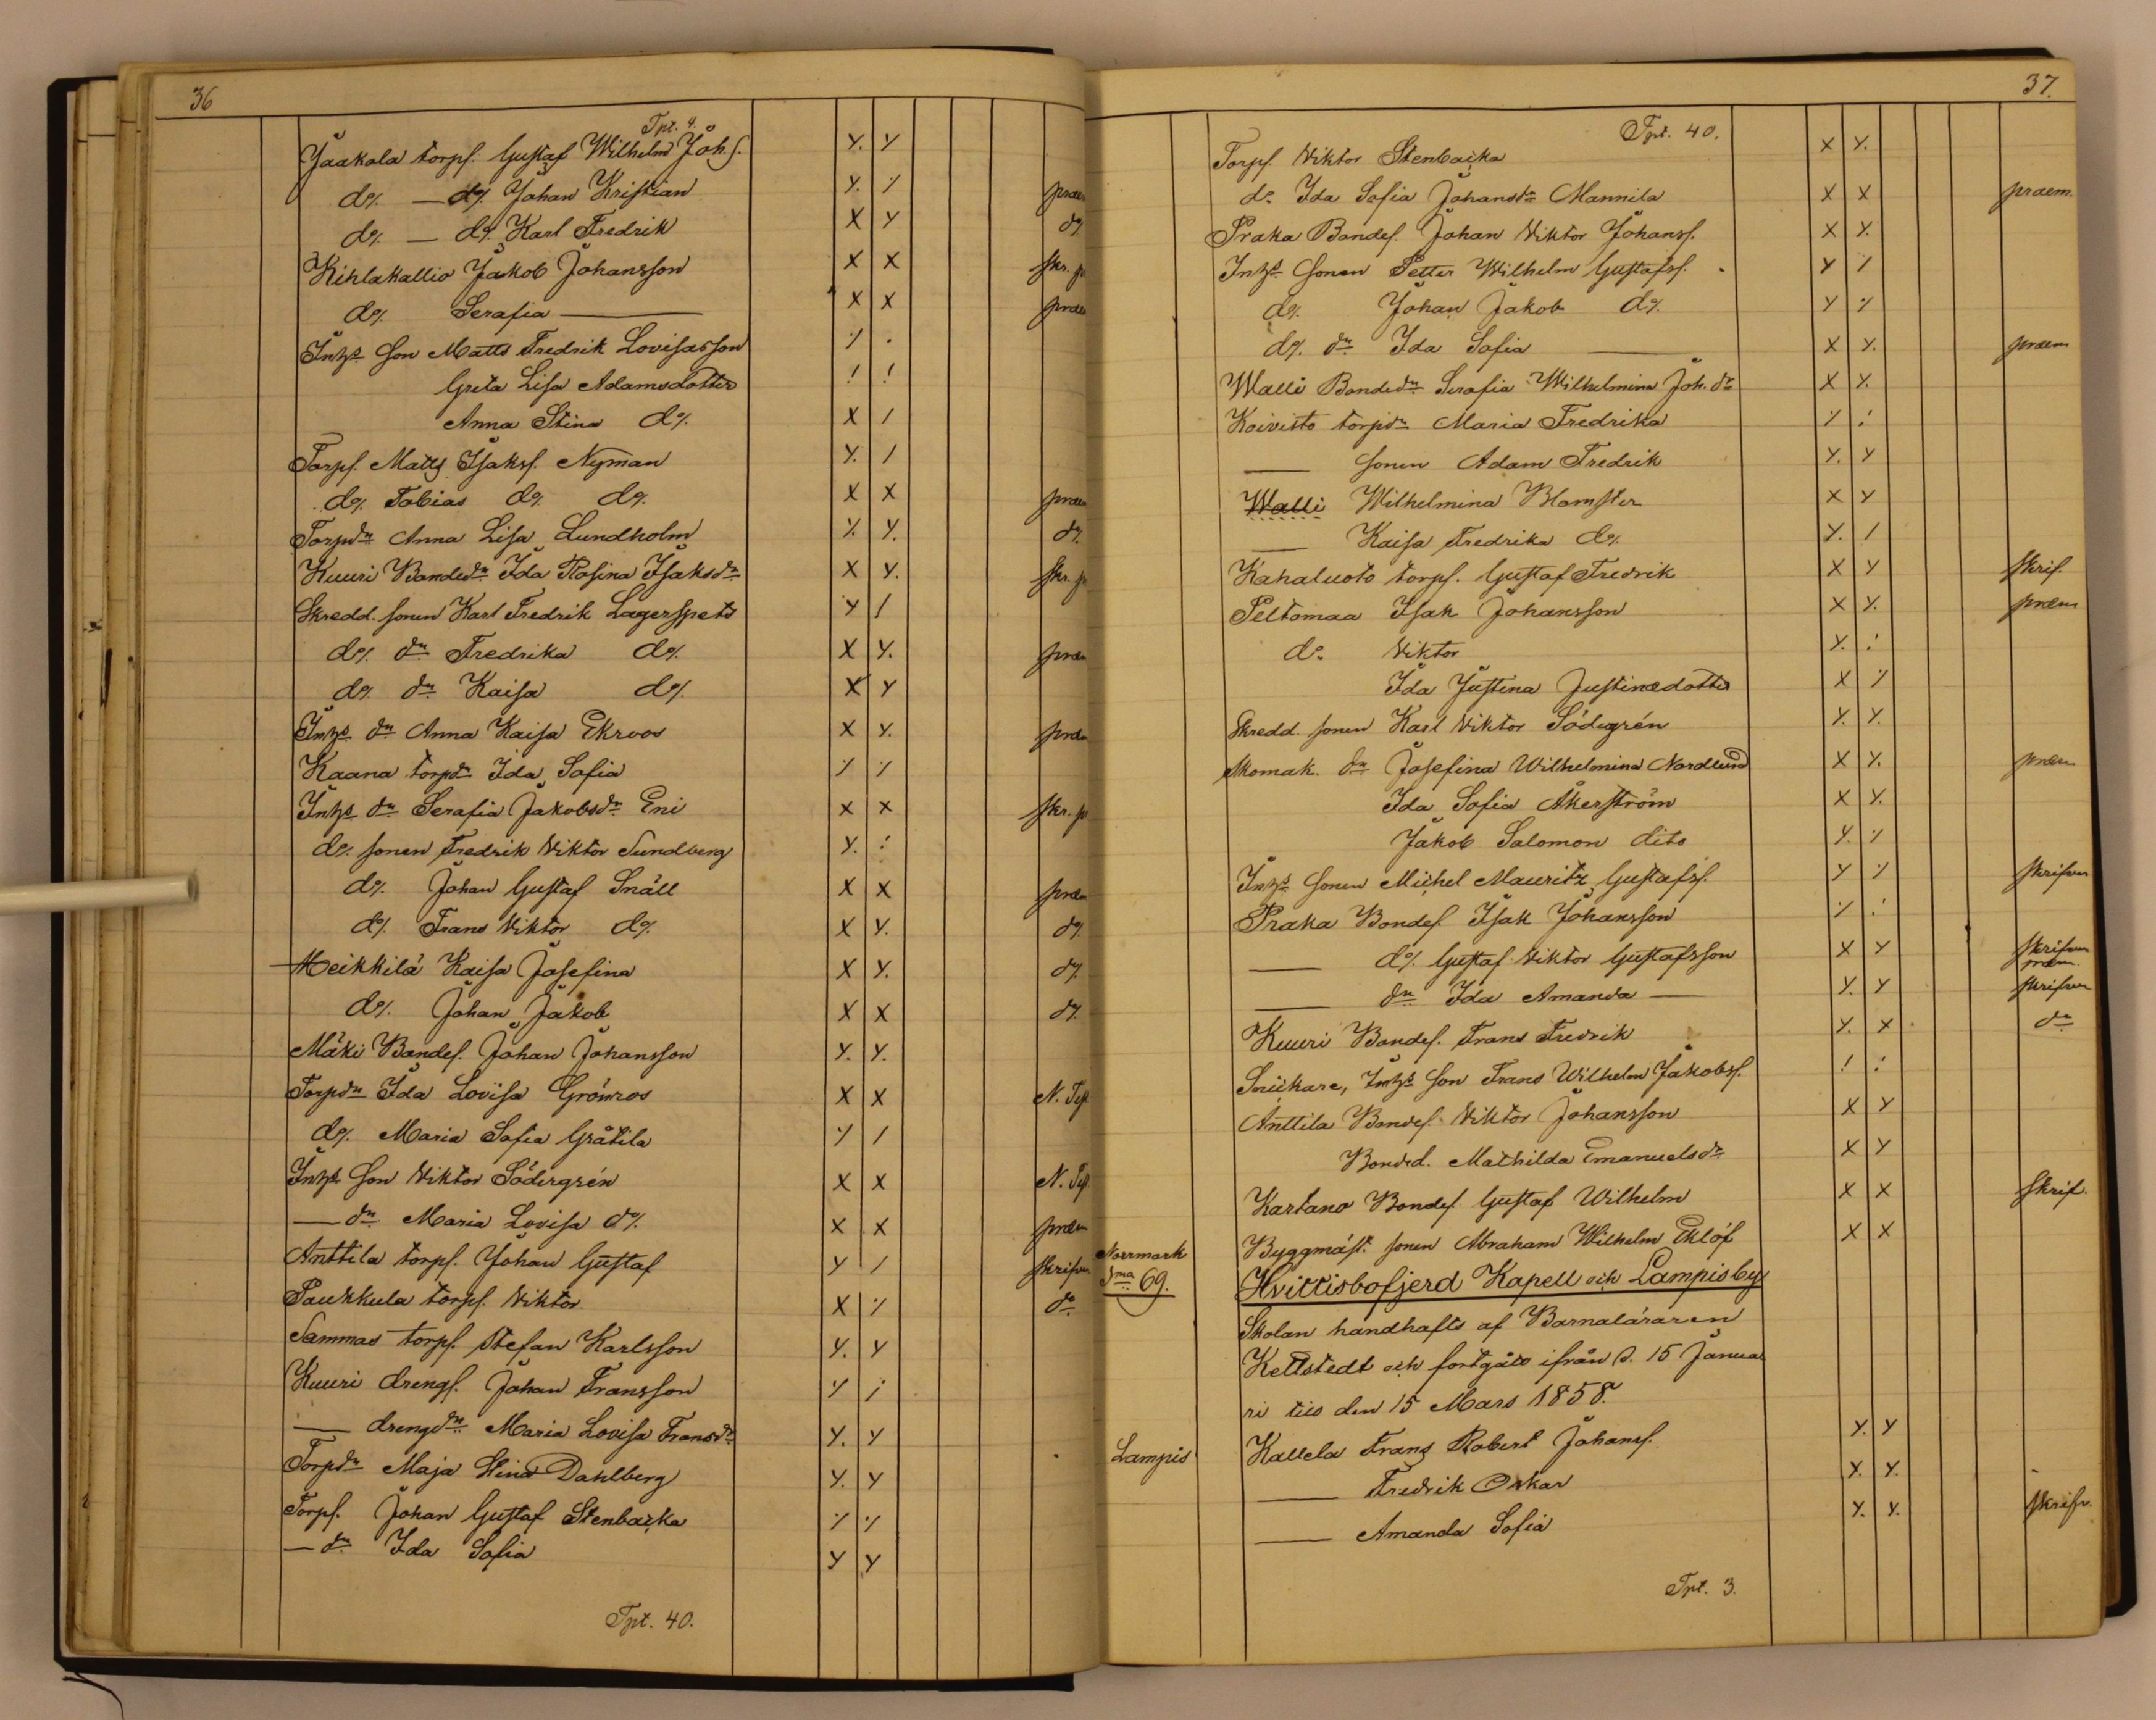 36
Tpt. 4.
Jaakola torps. Gustaf Wilhelm Joh.s. Y. Y
do/. — do/. Johan Kristian Y. ٪ praem
do/. — do/. Karl Fredrik X Y do/.
Kihlakallio Jakob Johansson X X skr. p
do/. Serafia — X X praem
Inhs. Son Matts Fredrik Lovisasson ٪ .
Greta Lisa Adamsdotter ! !
Anna Stina do/. X /
Torps. Matts Isakss. Nyman Y. /
do/. Tobias do/. do/. X X praem
Torpdr Anna Lisa Lundholm Y. Y. do/.
Kuuri Bondedr Ida Rosina Isaksdr X Y. skr. p
Skredd. sonen Karl Fredrik Lagerspets Y /
do/. dr Fredrika do/. X Y. praem
do/. dr Kaisa do/. X Y
Inhs. dr Anna Kaisa Ekroos X Y. praem
Kaana torpdr Ida Sofia ٪ ٪
Inhs. dr Serafia Jakobsdr Eni X X skr. p
do/. sonen Fredrik Viktor Sundberg Y. :
do/. Johan Gustaf Snäll X X praem
do/. Frans Viktor do/. X Y. do/.
Heikkilä Kaisa Josefina X Y. do/.
do/. Johan Jakob X X do/.
Mäki Bondes. Johan Johansson Y. Y.
Torpdr Ida Lovisa Grönroos X X N. Tes
do/. Maria Sofia Gråtila ٪ /
Inhs. Son Viktor Södergrén X X N. Tes
— dr Maria Lovisa do/. X X praem
Anttila torps. Johan Gustaf Y / skrifver
Paukkula torps. Viktor X ٪ do
Sammas torps. Stefan Karlsson Y. Y
Kuuri drengs. Johan Fransson ٪ ;
— drengdr Maria Lovisa Fransdr Y. Y
Torpdr Maja Stina Dahlberg Y. Y
Torps. Johan Gustaf Stenbacka ٪ ٪
— dr Ida Sofia Y Y
Tpt. 40.
37.
Tpt. 40.
Torps. Viktor Stenbacka X Y.
do. Ida Sofia Johansdr Mannila X X praem.
Praka Bondes. Johan Viktor Johanss. X Y.
Inhs. Sonen Petter Wilhelm Gustafss. Y /
do/. Johan Jakob do/. Y ٪
do/. dr Ida Sofia — X Y. praem
Walli Bondedr Serafia Wilhelmina Joh. dr X Y.
Koivisto torpdr Maria Fredrika ٪ :
— Sonen Adam Fredrik Y. Y
Walli Wilhelmina Blomster X Y
— Kaisa Fredrika do/. Y. /
Kahaluoto torps. Gustaf Fredrik X Y skrif.
Peltomaa Isak Johansson X Y. praem
do. Viktor Y. :
Ida Justina Justinædotter X ٪
Skredd. sonen Karl Viktor Södegrén Y. Y.
Skomak. dr Josefina Wilhelmina Nordlund X Y. praem
Ida Sofia Åkerström X Y.
Jakob Salomon dito Y. ٪
Inhs. Sonen Michel Mauritz Gustafss. Y ٪ skrifver
Praka Bondes. Isak Johansson ٪ :
— do/. Gustaf Viktor Gustafsson X Y skrifver praem.
— dr Ida Amanda — Y. Y skrifver
Kuuri Bondes. Frans Fredrik Y. X do
Snickare, Inhs. Son Frans Wilhelm Jakobss. ! :
Anttila Bondes. Viktor Johansson X Y
Bonded. Mathilda Emanuelsdr X Y
Kartano Bondes. Gustaf Wilhelm X X skrif.
Byggmäst. sonen Abraham Wilhelm Eklöf X X
Norrmark
Sma 69.
Hvittisbofjerd Kapell och Lampisby
Skolan handhafts af Barnaläraren
Kellstedt och fortgåto ifrån d. 15 Janua
ri till den 15 Mars 1858.
Lampis Kallela Frans Robert Johanss. Y. Y
— Fredrik Oskar Y. Y.
— Amanda Sofia Y. Y. skrifv.
Tpt. 3.